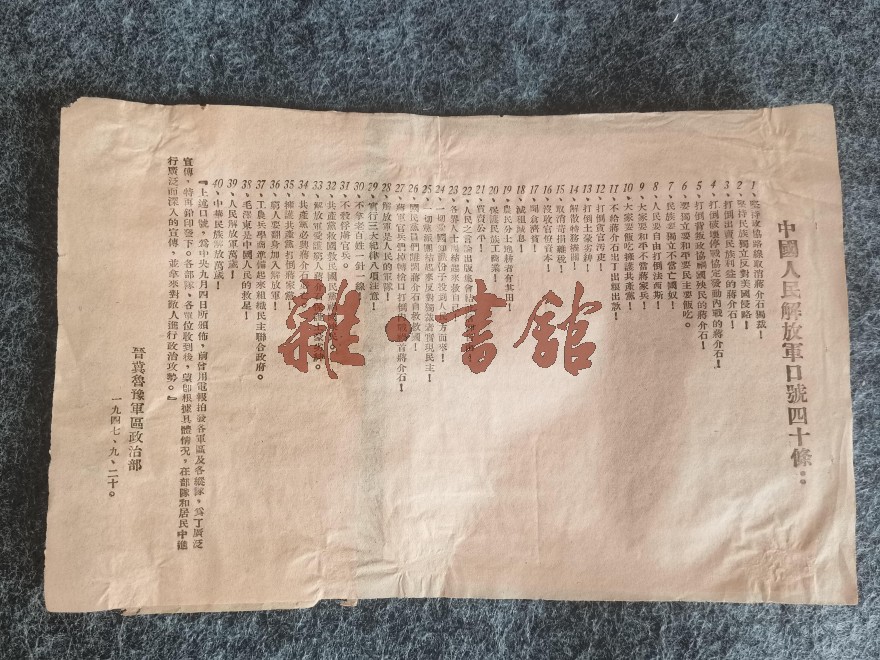 中國人民解放軍口號四十條：
1、堅持友協路線取消蔣介石獨裁！
2、堅持民族獨立反對美國侵略！
3、打倒出賣民族利益的蔣介石！
4、打倒破壞停戰協定發動內戰的蔣介石！
5、打倒背叛政協禍國殃民的蔣介石！
6、要獨立要和平要民主要飯吃。
7、民族要獨立不當亡國奴！
8、人民要自由打倒法西斯！
9、大家要和平不當蔣家兵！
10、大家要飯吃擁護共產黨！
11、不給蔣介石出丁出糧出款！
12、打倒貪官污吏！
13、打倒土豪劣紳！
14、解散特務機關！
15、取消苛捐雜稅！
16、沒收官僚資本！
17、開倉濟貧！
18、減租減息！
19、農民分土地耕者有其田！
20、保護民族工商業！
21、買賣公平！
22、人民之言論出版集會結
23、各界人士團結起來救自
24、一切愛國軍政份子投到人 方面來！
25、一切黨派團結起來反對獨裁者實現民主！
26、國民黨員們離開蔣介石自救救國！
27、蔣軍官兵們掉轉槍口打倒 蔣介石！
28、解放軍是人民的軍隊！
29、實行三大紀律八項注意！
30、不拿老百姓一針一線
31、不殺俘虜官兵。
32、共產黨救國救民國民黨
33、解放軍愛護窮人蔣介石
34、共產黨必興蔣介石
35、擁護共產黨打倒蔣家黨
36、窮人要翻身加入解放軍！
37、工農兵學商聯合起來組織民主聯合政府。
38、毛澤東是中國人民的救星！
39、人民解放軍萬歲！
40、中華民族解放萬歲！
『上述口號，爲中央九月四日所頒佈，前曾用電報拍發各軍區及各縱隊，爲了廣泛
宣傳，特再鉛印發下。各部隊、各單位收到後，望即根據具體情況，在部隊和居民中進
行廣泛而深入的宣傳，並拿來對敵人進行政治攻勢。』
晉冀魯豫軍區政治部
一九四七、九、二十。
雜·書舘